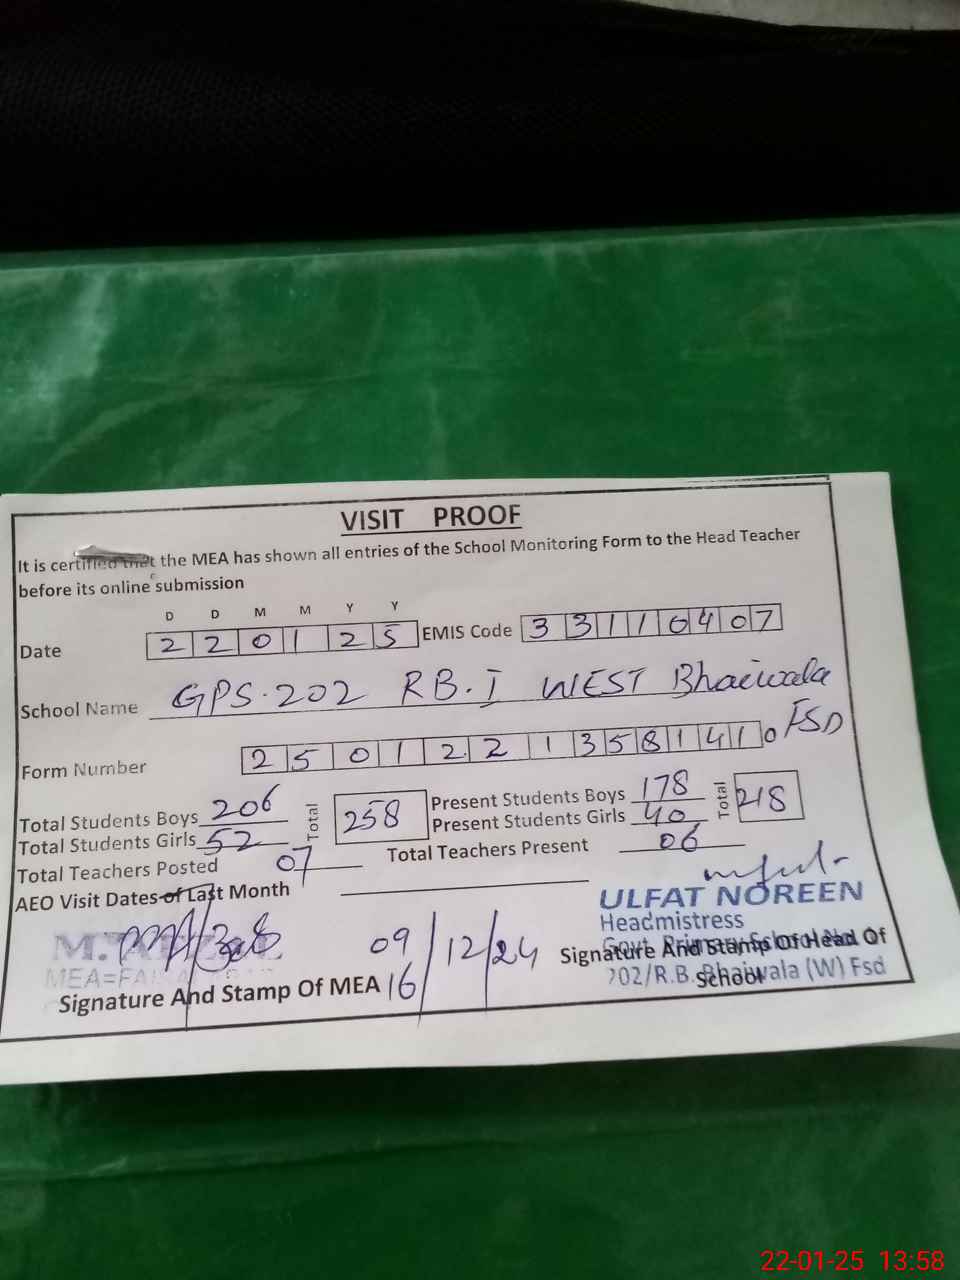 VISIT PROOF
It is certified that the MEA has shown all entries of the School Monitoring Form to the Head Teacher
before its online submission
D D M M Y Y
Date 2 2 0 1 2 5 EMIS Code 3 3 1 1 0 4 0 7
School Name GPS. 202 RB. I WEST Bhaiwala
FSD
Form Number 2 5 0 1 2 2 1 3 5 8 1 4 1 0
Total Students Boys 206 Total 258 Present Students Boys 178 Total 218
Total Students Girls 52 Present Students Girls 40
Total Teachers Posted 07 Total Teachers Present 06
AEO Visit Dates of Last Month
ULFAT NOREEN
Headmistress
Govt. Primary School
M.
MEA=
09 16/12/24
Signature And Stamp Of Head Of School
202/R.B. Bhaiwala (W) Fsd
Signature And Stamp Of MEA
22-01-25 13:58